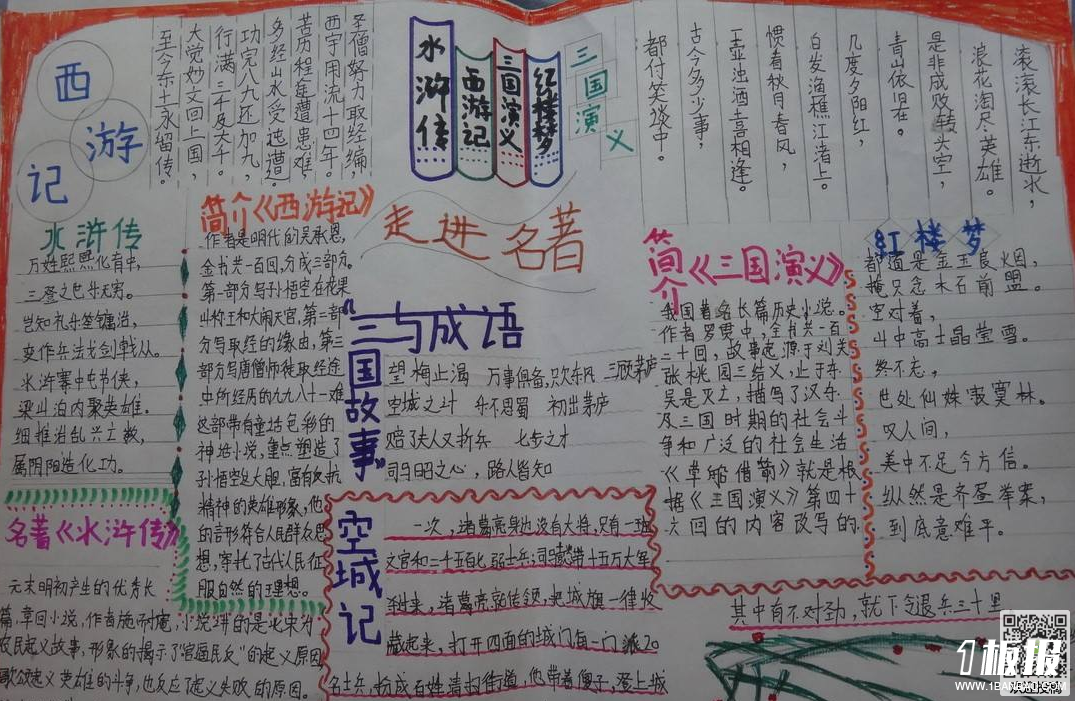 西
游
记
圣僧努力取经编,
西宇周流十四年。
苦历程途遭患难,
多经山水受迍邅。
功完八九还加九,
行满三千及大千。
大觉妙文回上国,
至今东土永留传。
水浒传
西游记
三国演义
红楼梦
三国演义
滚滚长江东逝水,
浪花淘尽英雄。
是非成败转头空,
青山依旧在。
几度夕阳红,
白发渔樵江渚上。
惯看秋月春风,
一壶浊酒喜相逢。
古今多少事,
都付笑谈中。
走进名著
水浒传
万姓熙熙化育中,
三登之世乐无穷。
岂知礼乐笙镛治,
变作兵戈剑戟丛。
水浒寨中屯节侠,
梁山泊内聚英雄。
细推治乱兴亡数,
属阴阳造化功。
名著《水浒传》
元末明初产生的优秀长
篇,章回小说,作者施耐庵,小说讲的是北宋为
农民起义故事,形象的揭示了"官逼民反"的起义原因
歌颂起义英雄的斗争,也反应了起义失败的原因。
简介《西游记》
作者是明代的吴承恩,
全书共一百回,分成三部分。
第一部分写孙悟空在花果
山称王和大闹天宫,第二部
分写取经的缘由,第三
部分写唐僧师徒取经途
中所经历的九九八十一难
这部带有童话色彩的
神话小说,重点塑造了
孙悟空这大胆,富有反抗
精神的英雄形象,他
的言形符合人民群众思
想,寄托了古代人民征
服自然的理想。
"三国故事"与成语
望梅止渴 万事俱备,只欠东风 三顾茅庐
空城之计 乐不思蜀 初出茅庐
赔了夫人又折兵 七步之才
司马昭之心,路人皆知
空城记
一次,诸葛亮身边没有大将,只有一班
文官和二千五百七弱士兵;司马懿带十五万大军
到来,诸葛亮就传领,把城旗一律收
藏起来,打开四面的城门每一门派20
名士兵,扮成百姓清扫街道,他带着傻子,登上城
其中有不对劲,就下令退兵三十里
简介《三国演义》
我国著名长篇历史小说。
作者罗贯中,全书共一百
二十回,故事起源于刘关
张桃园三结义,止于东
吴是灭亡,描写了汉东
及三国时期的社会斗
争和广泛的社会生活
《草船借箭》就是根
据《三国演义》第四十
六回的内容改写的
红楼梦
都道是金玉良烟,
俺只念木石前盟。
空对着,
山中高士晶莹雪。
终不忘,
世外仙姝寂寞林。
叹人间,
美中不足今方信。
纵然是齐眉举案,
到底意难平。
1板报
WWW.1BANBAO.COM